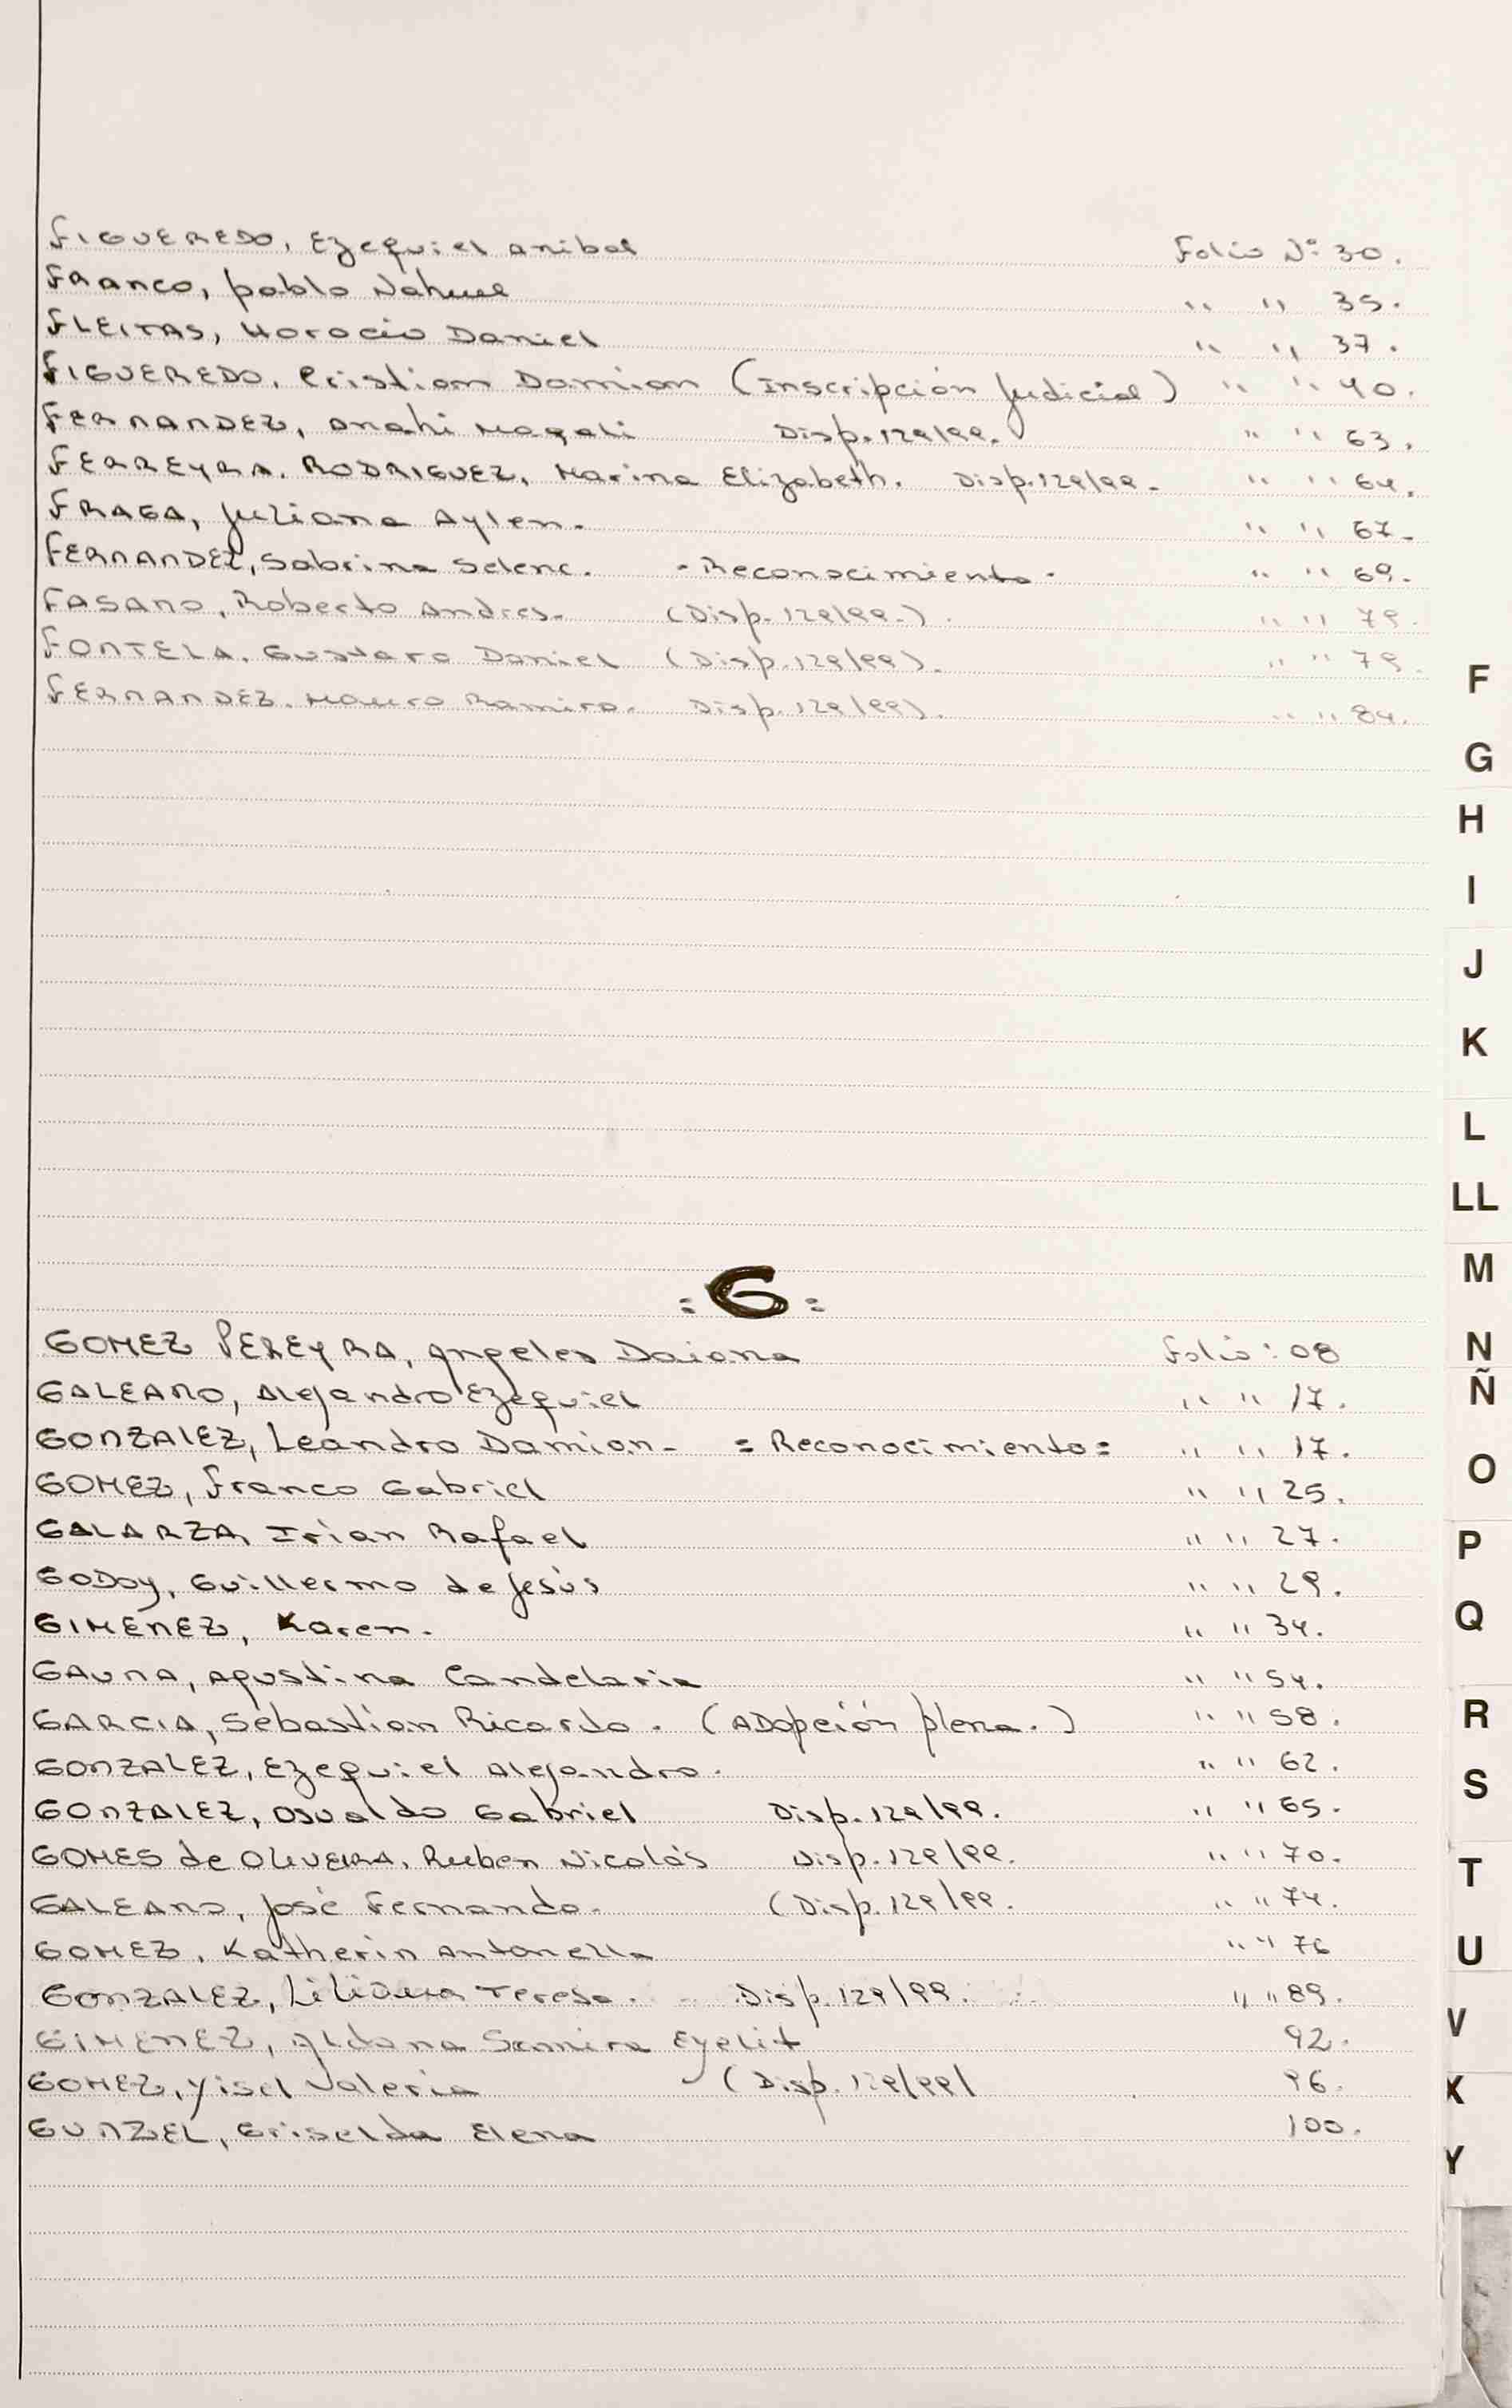 FIGUEREDO, Ezequiel Anibal Folio Nº 30.
FRANCO, pablo Nahuel " " 35.
FLEITAS, Horacio Daniel " " 37.
FIGUEREDO, Cristian Damian (Inscripción Judicial) " " 40.
FERNANDEZ, Anahi Magali Disp. 129/99. " " 63.
FERREYRA. RODRIGUEZ, Marina Elizabeth. Disp. 129/99- " " 64.
FRAGA, Juliana Aylen. " " 67-
FERNANDEZ, Sabrina Selene. - Reconocimiento - " " 69.
FASANO, Roberto Andres- (Disp. 129/99-). " " 79.
FONTELA. Gustavo Daniel (Disp. 129/99). " " 79.
FERNANDEZ. Mauro Ramiro. Disp. 129/99). " " 84.
= G =
GOMEZ PEREYRA, Angeles Daiana Folio: 08
GALEANO, Alejandro Ezequiel " " 17.
GONZALEZ, Leandro Damian- = Reconocimiento = " " 17.
GOMEZ, Franco Gabriel " " 25.
GALARZA, Irian Rafael " " 27.
GODOY, Guillermo de Jesús " " 29.
GIMENEZ, Karen. " " 34.
GAUNA, Agustina Candelaria " " 54.
GARCIA, Sebastian Ricardo. (ADopción plena.) " " 58.
GONZALEZ, Ezequiel Alejandro. " " 62.
GONZALEZ, Osvaldo Gabriel Disp. 129/99. " " 65.
GOMES de OLIVEIRA, Ruben Nicolás Disp. 129/99. " " 70.
GALEANO, José Fernando. (Disp. 129/99. " " 74.
GOMEZ, Katherin Antonella " " 76
GONZALEZ, Liliana Teresa. Disp. 129/99. " " 89.
GIMENEZ, Aldana Samira Eyelit 92.
GOMEZ, Yisel Valeria (Disp. 129/99) 96.
GUNZEL, Griselda Elena 100.
F
G
H
I
J
K
L
LL
M
N
Ñ
O
P
Q
R
S
T
U
V
X
Y